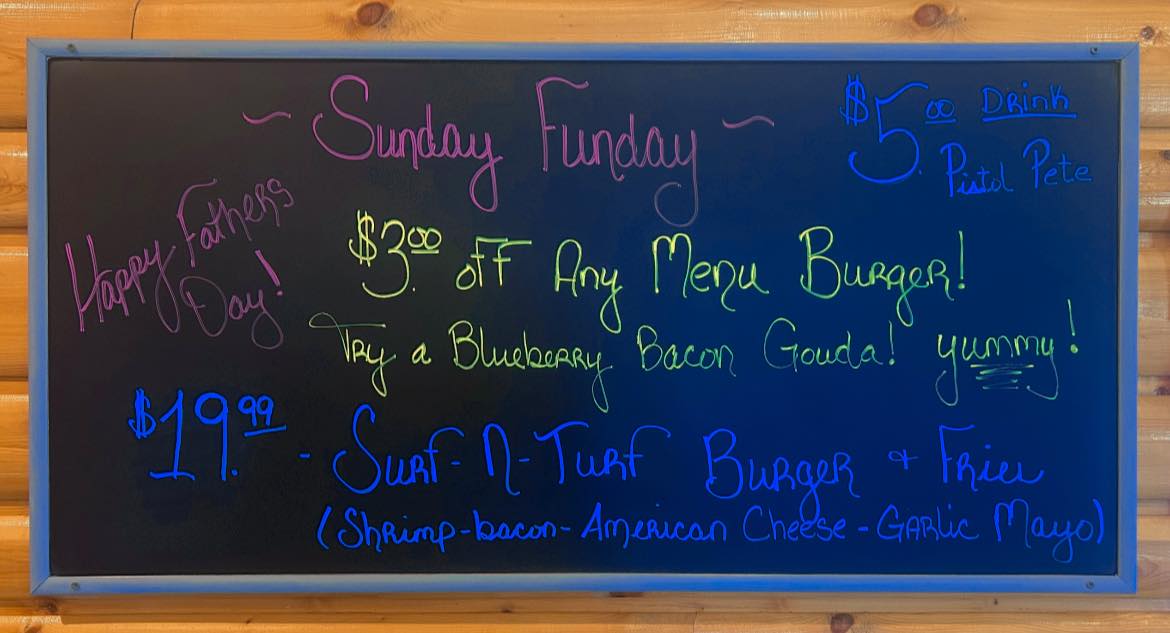 ~ Sunday Funday ~
$5.00 Drink
Pistol Pete
Happy Fathers
Day!
$3.00 off Any Menu Burger!
Try a Blueberry Bacon Gouda! yummy!
$19.99 - Surf-N-Turf Burger + Fries
(Shrimp-bacon-American Cheese-Garlic Mayo)